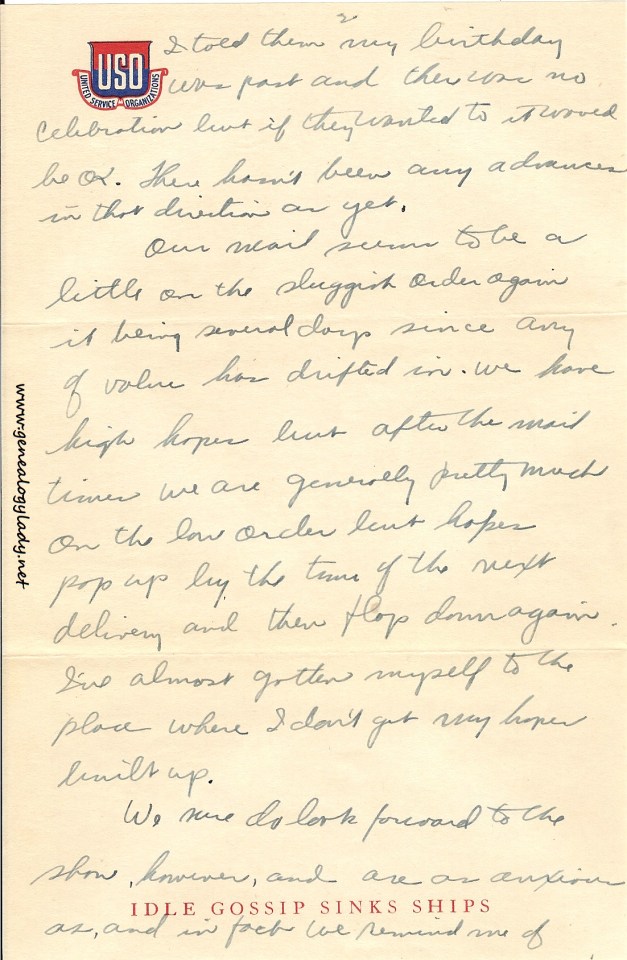 2
USO
UNITED SERVICE ORGANIZATIONS
I told them my birthday
was past and there was no
celebration but if they wanted to it would
be OK. There hasn't been any advances
in that direction as yet.
Our mail seems to be a
little on the sluggish order again
it being several days since any
of value has drifted in. We have
high hopes but after the mail
times we are generally pretty much
on the low order but hopes
pop up by the time of the next
delivery and then flop down again.
I've almost gotten myself to the
place where I don't get my hopes
built up.
We sure do look forward to the
show, however, and are as anxious
IDLE GOSSIP SINKS SHIPS
as, and in fact we remind me of
www.genealogylady.net